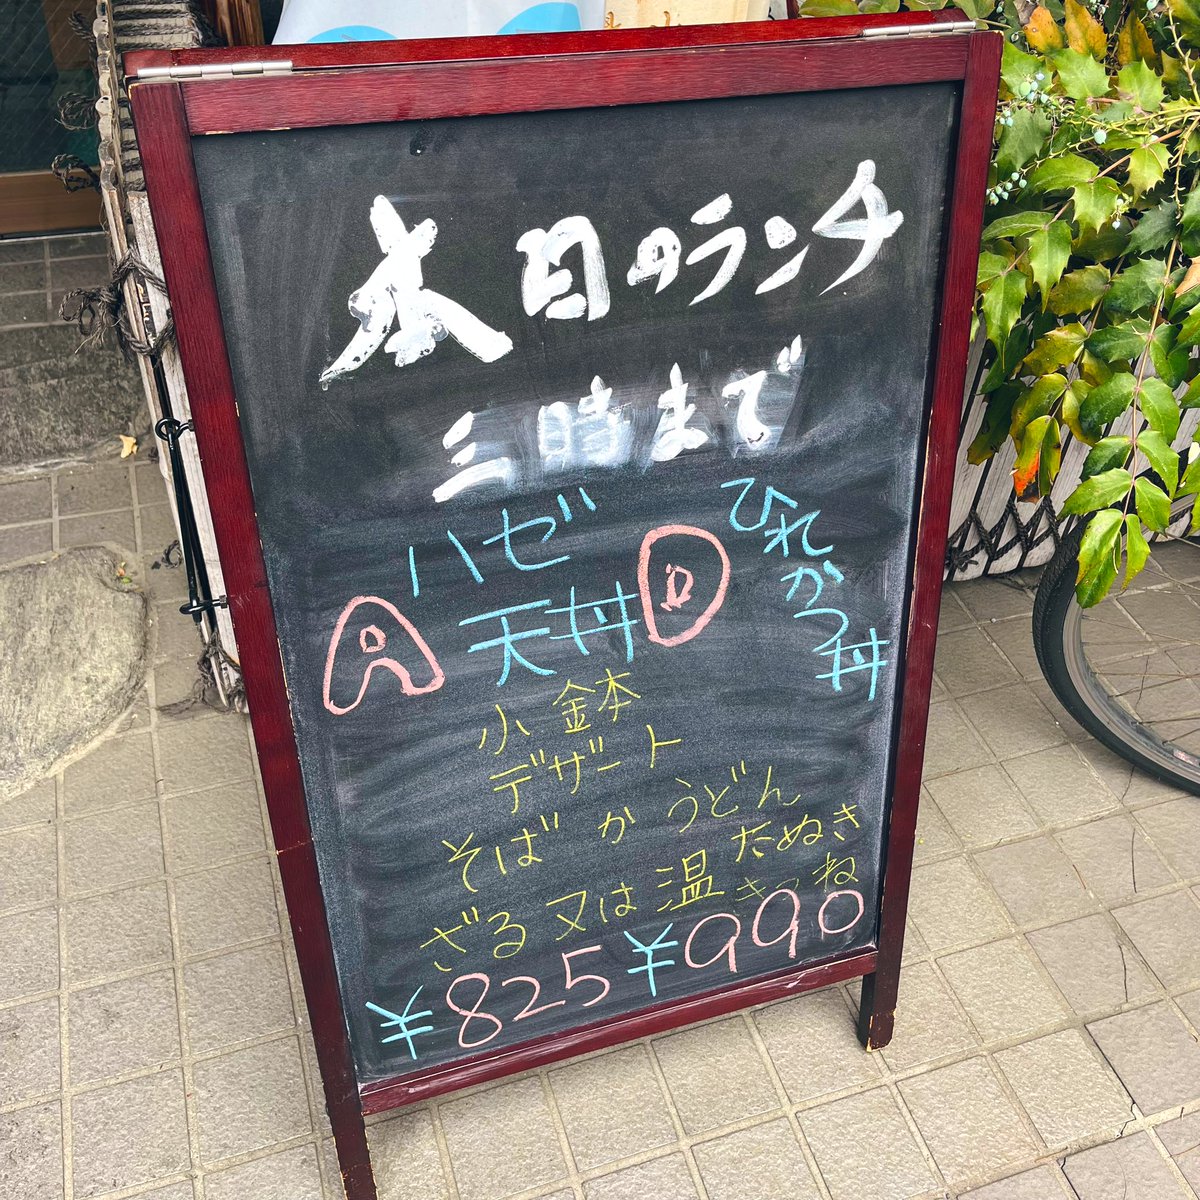 本日のランチ
三時まで
A
ハゼ
天丼
B
ひれかつ丼
小鉢
デザート
そばかうどん
ざる又は温
たぬき
きつね
¥825
¥990